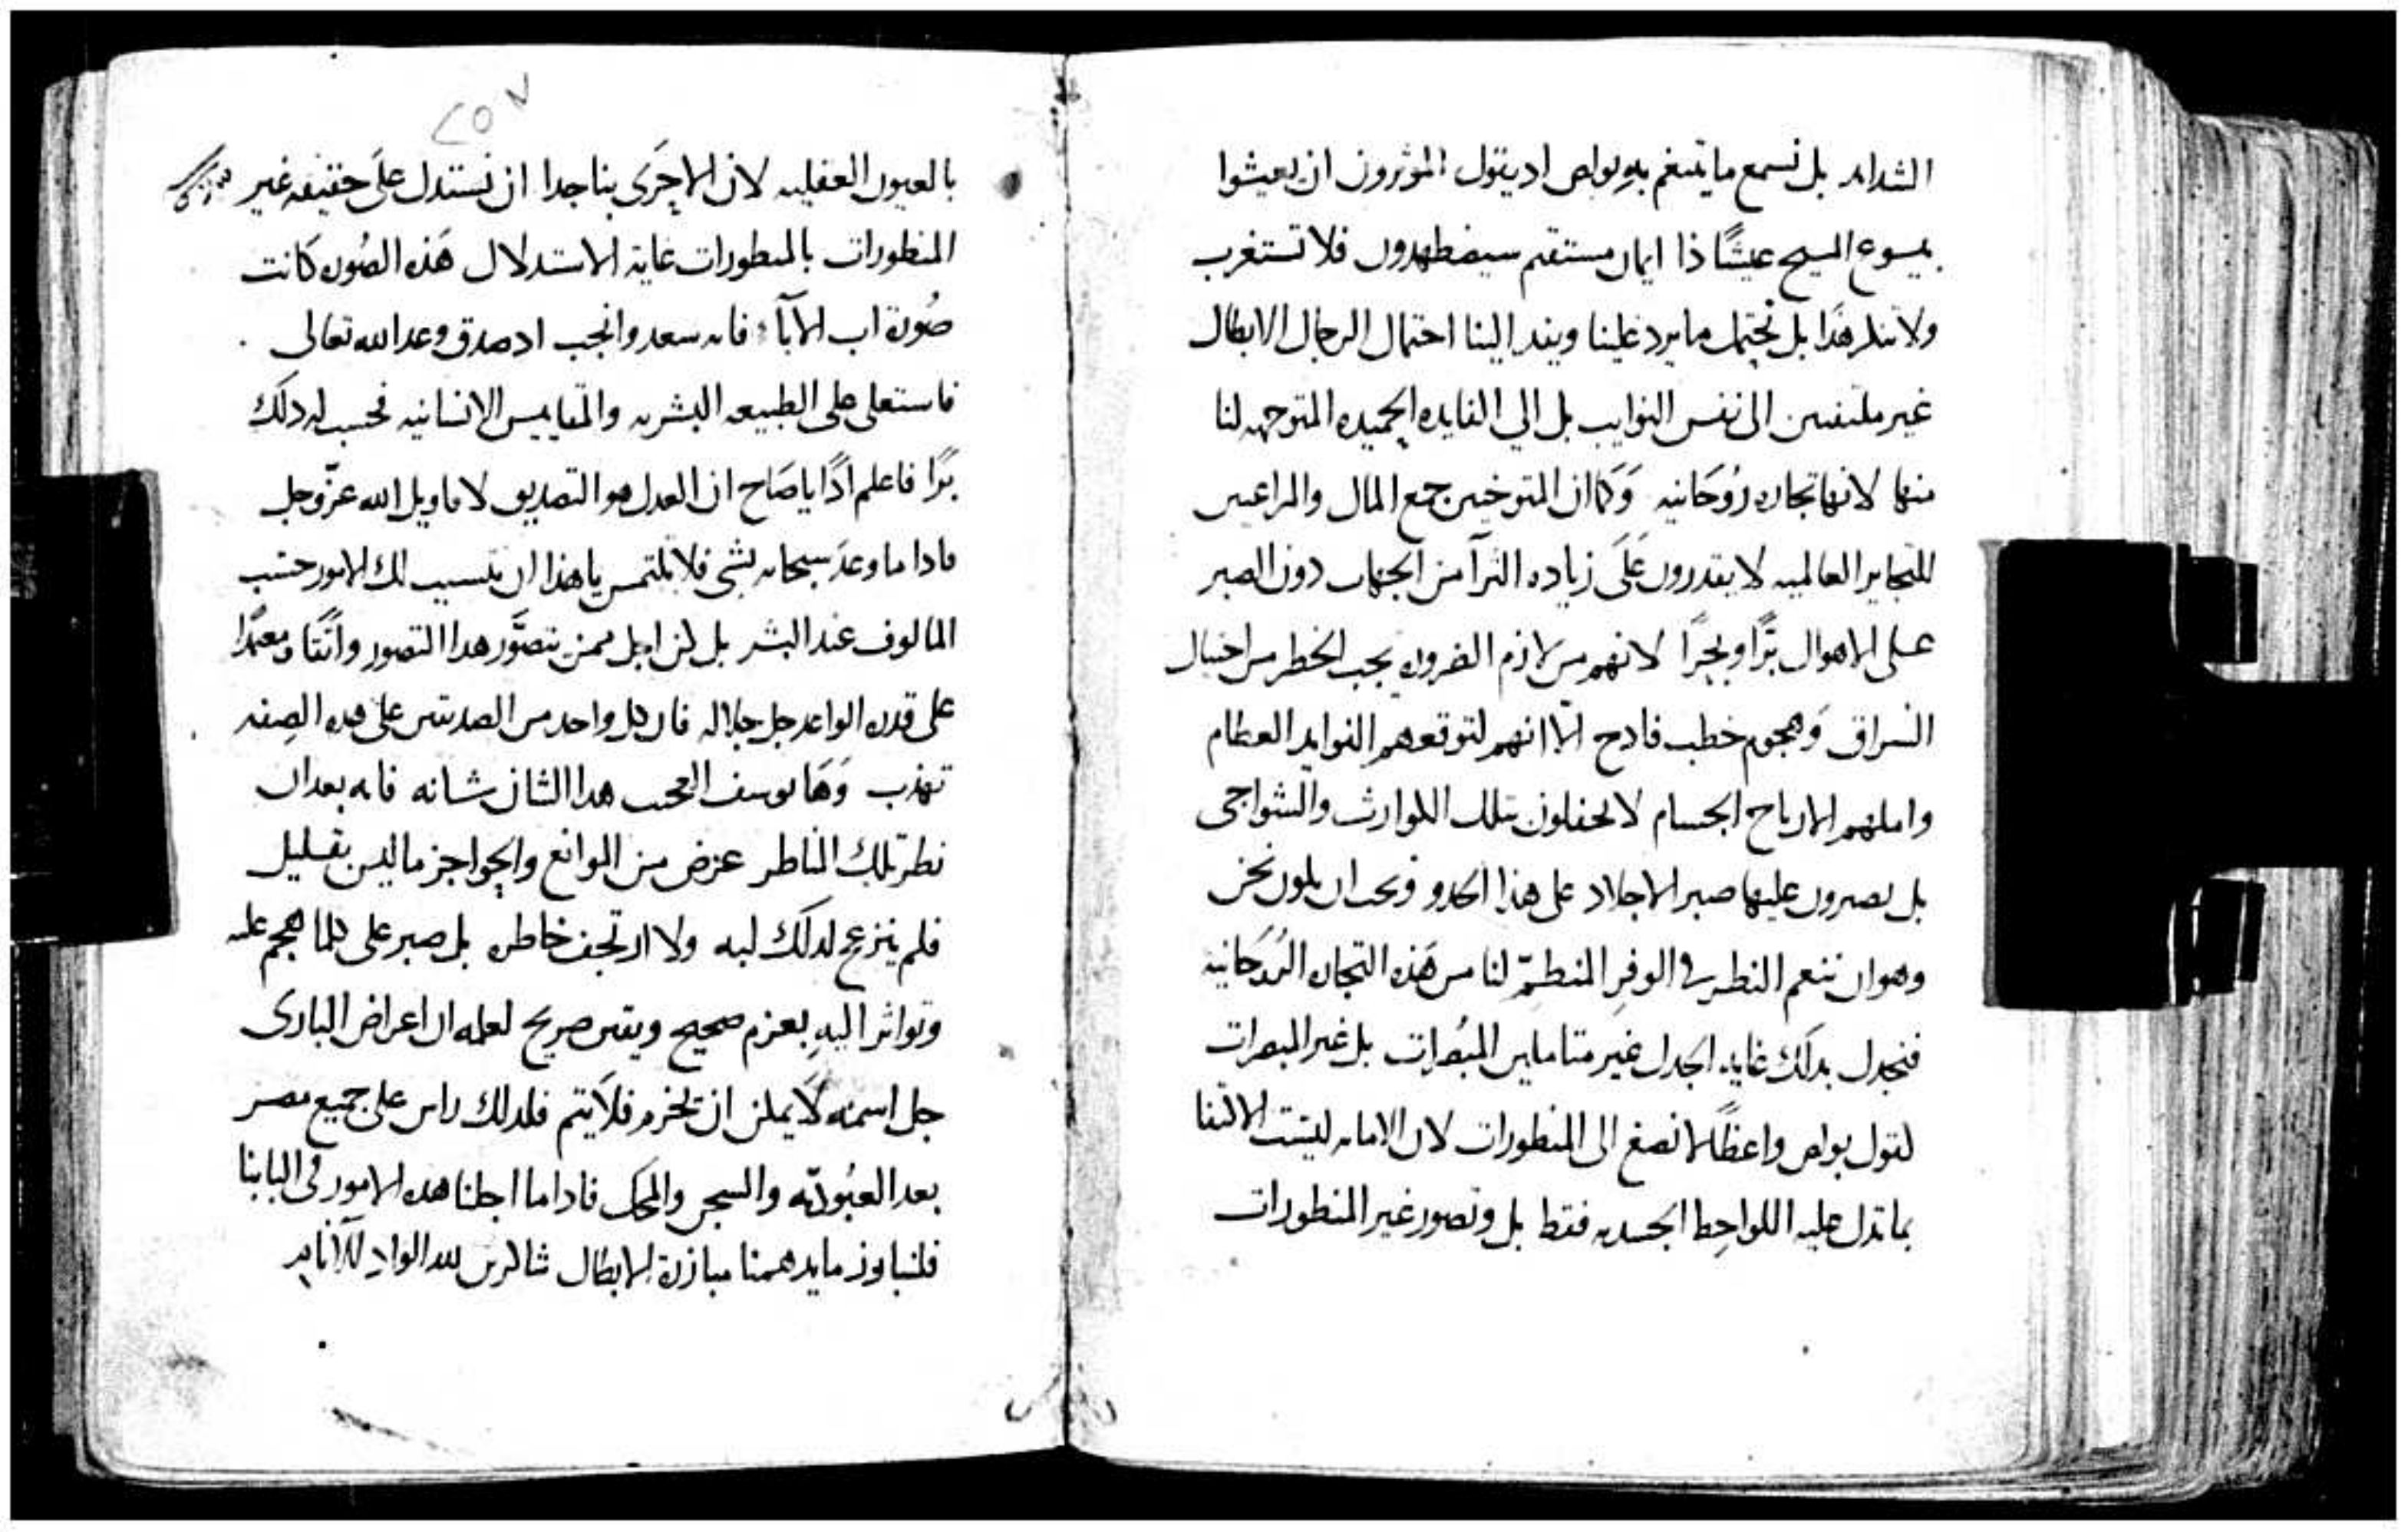 الشدايد بل نسمع ما يتنغم به بولص اد يقول الموثرون ان يعيشوا
بيسوع المسيح عيشًا ذا ايمان مستقيم سيضطهدون فلا تستغرب
ولا ننكر هذا بل نحتمل ما يرد علينا ويفد الينا احتمال الرجال الابطال
غير ملتفتين الى نفس النوايب بل الي الفايده الحميده المتوجهه لنا
منها لانها تجاره رُوحانيه وكما ان المتوخين جمع المال والراغبين
المتجاير العالميه لا يقدرون على زياده الثرا من الجهات دون الصبر
على الاهوال برًّا وبحرًا لانهم من لازم الضروره يجب الخطر من احتيال
السراق وهجوم خطب فادح الّا انهم لتوقعهم الفوايد العظام
واملهم الارباح الجسام لا يحفلون بتلك الكوارث والشواجي
بل يصبرون عليها صبر الاجلاد على هذا الحدو ويجب ان نكون نحن
وهو ان ننعم النظر في الوفر المنظمّ لنا من هذه التجاره الرُوحانيه
فنجدل بدلك غايه الجدل غير متاملين المبُصرات بل غير المبصرات
لقول بولص واعظًا لا نصغ الى المنظورات لان الامانه ليست الاثنا
بما تدل عليه اللواحظ الجسديه فقط بل وتصور غير المنظورات
٢٥٧
بالعيون العقليه لان الاحرى بنا جدا ان نستدل على حقيقه غير
المنظورات بالمنظورات غاية الاستدلال هذه الصُوره كانت
صُورة اب الآباء فانه سعد وانجب اد صدق وعد الله تعالى
فاستعلى على الطبيعه البشريه والمقاييس الانسانيه فحسب له دلك
برًا فاعلم ادًا يا صَاح ان العدل هو التصديق لاقاويل الله عزّ وجل
فادا ما وعد سبحانه بشي فلا تلتمس يا هذا ان تتسبب لك الامور حسب
المالوف عند البشر بل كن اجل ممن يتصَوَّر هدا التصور واثقًا ومعتمدًا
على قدره الواعد جل جلاله فان كل واحد من الصديقين على هده الصفه
تهذب وها يوسف العجيب هدا الشان شانه فانه بعد ان
نظر تلك المناظر عرض من الموانع والحواجز ما ليس بقليل
فلم ينزعج لدلك لبه ولا ارتجف خاطره بل صبر على كلما هجم عليه
وتواثر اليه بعزم صحيح ويقين صريح لعلمه ان اعراض البارى
جل اسمه لا يمكن ان تخرم فلا يتم فلدلك راس على جميع مصر
بعد العبُوديّه والسجن والمحك فادا ما اجلنا هده الامور في البابنا
فلنبارز ما يدهمنا مبارزة الابطال شاكرين لله الواد